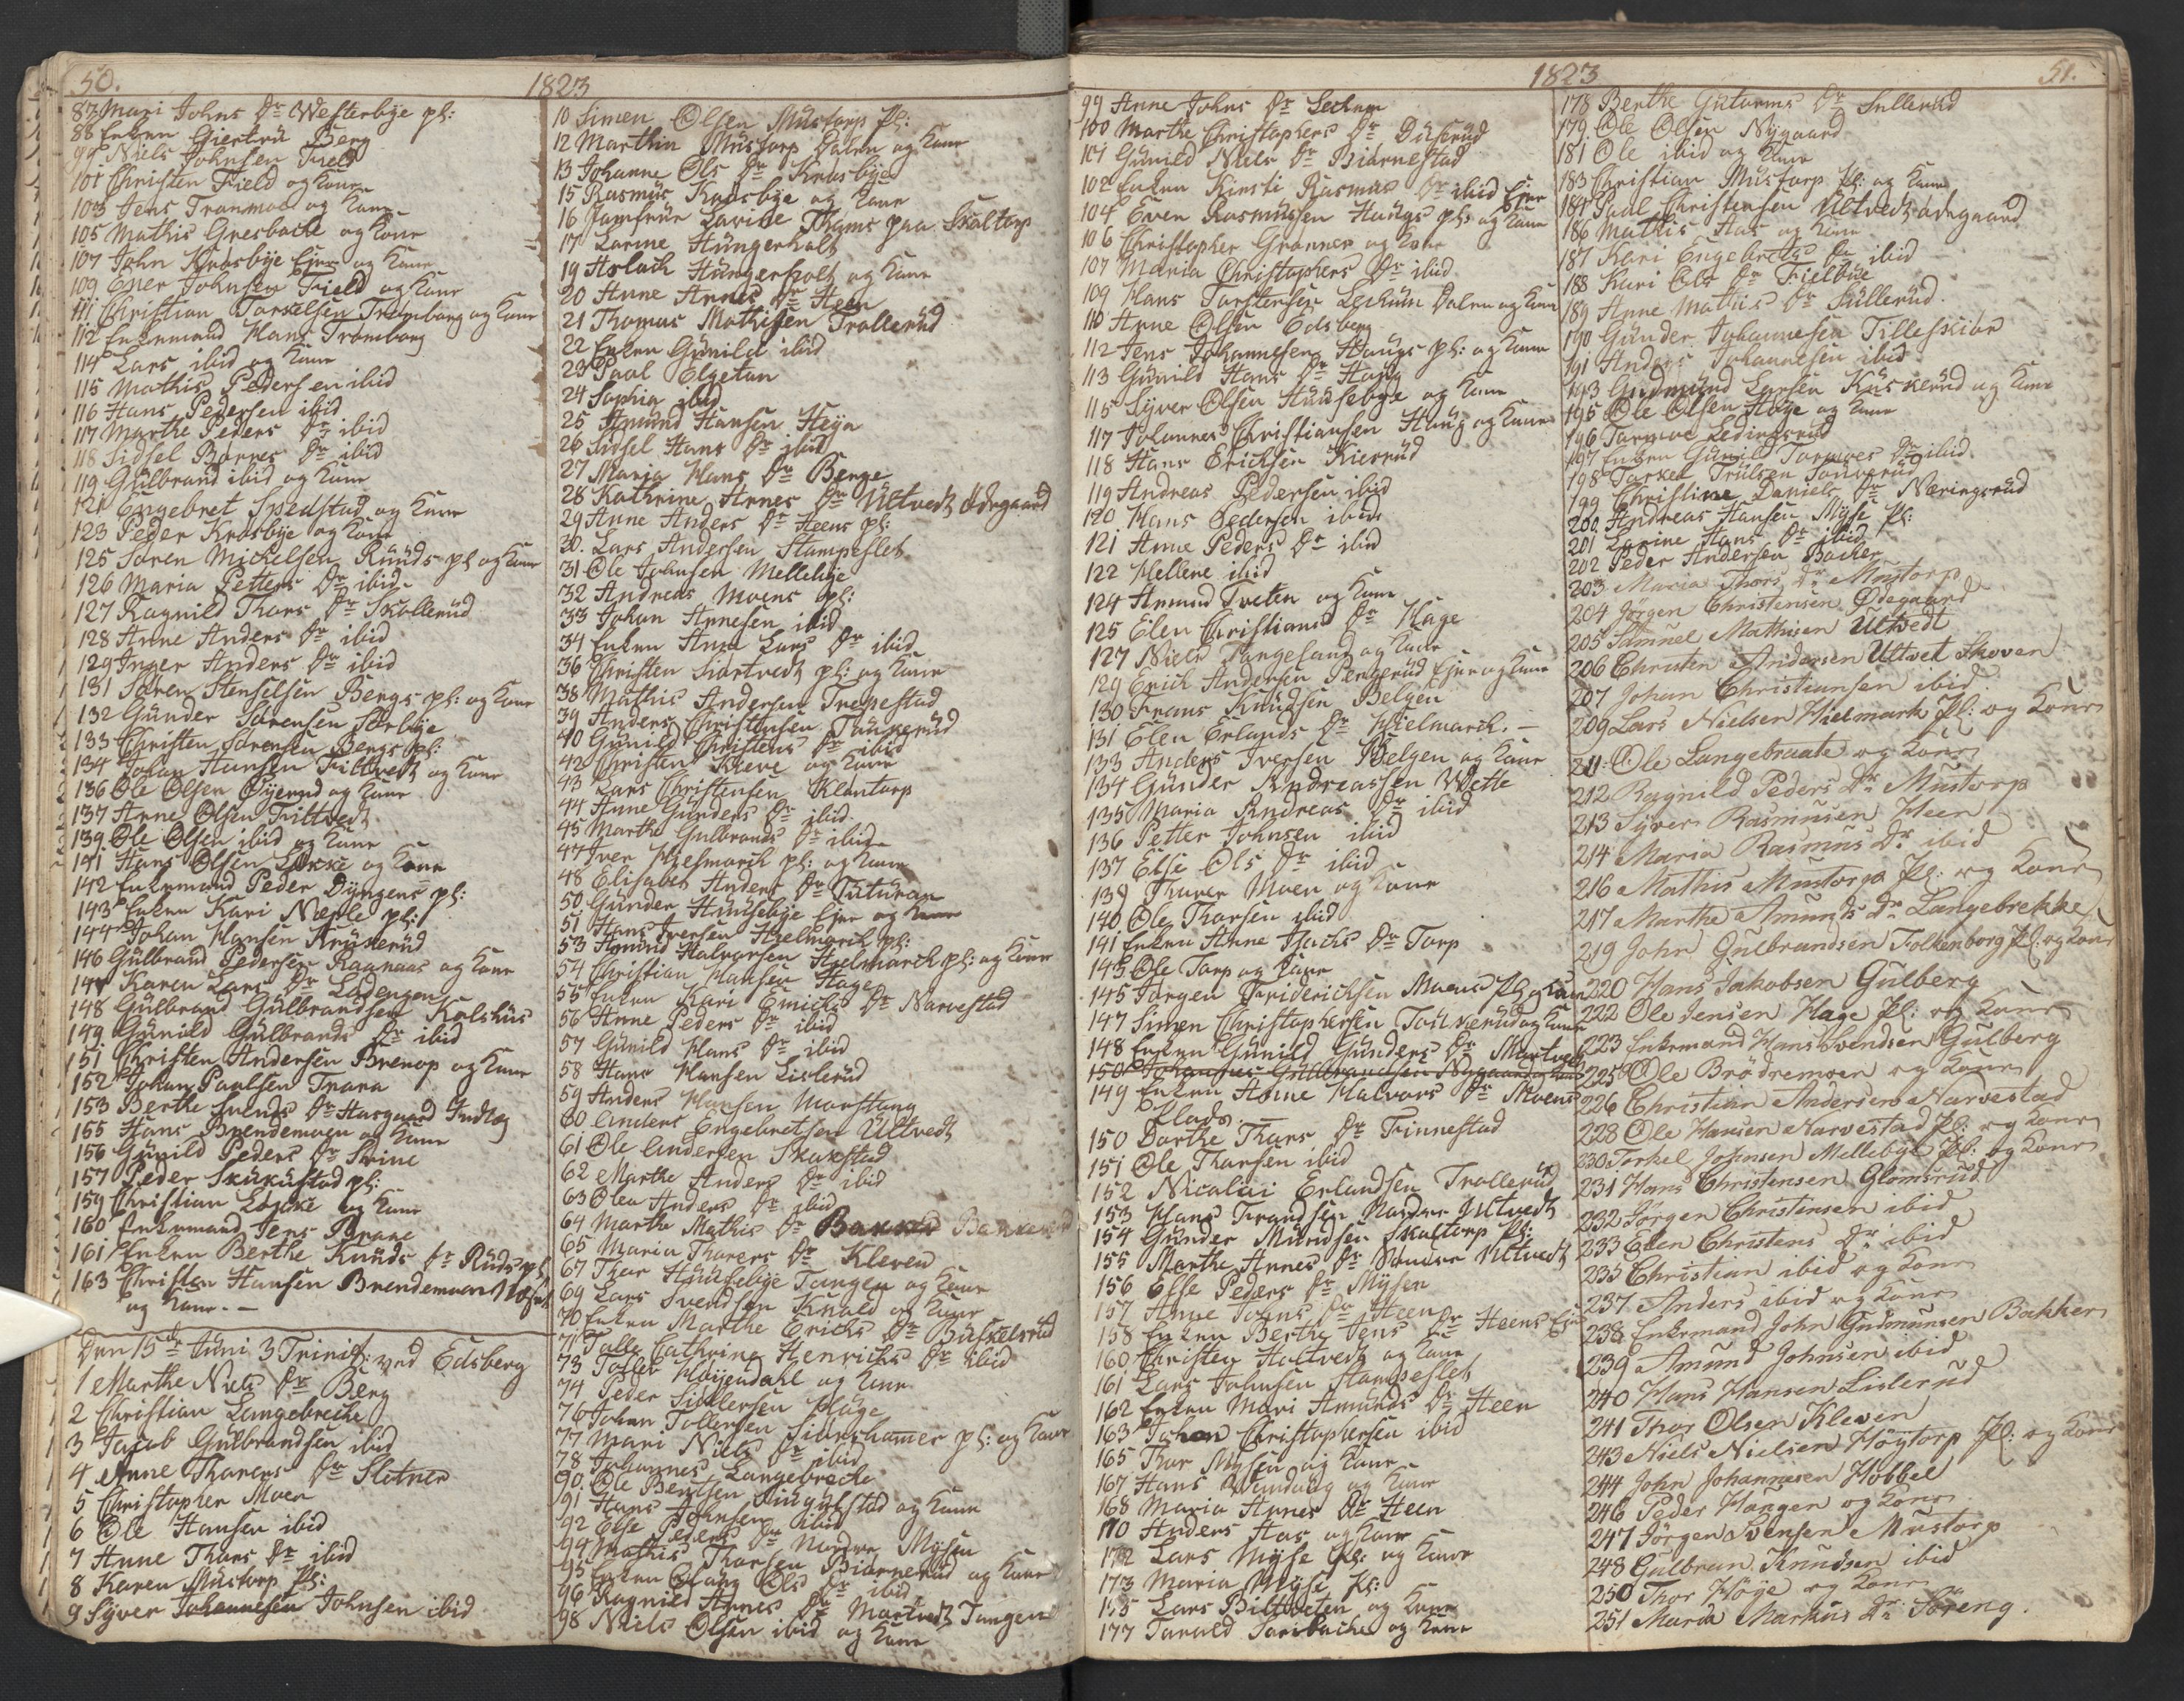 50.
1823
87 Mari Johns Dr Westerbye pl:
88 Enken Giertru Berg
99 Niels Johnsen Field
101 Christen Field og Kone
103 Jens Tranmoe og Kone
105 Mathis Gresbache og Kone
107 John Krosbye Ejer og Kone
109 Ener Johnsen Field og Kone
111 Christian Torkelsen Tromborg og Kone
112 Enkemand Hans Tromborg
114 Lars ibid og Kone
115 Mathis Pedersen ibid
116 Hans Pedersen ibid
117 Marthe Peders Dr ibid
118 Sidsel Bornes Dr ibid
119 Gulbrand ibid og Kone
121 Engebret Spedstad og Kone
123 Peder Krosbye og Kone
125 Soren Mickelsen Runds pl og Kone
126 Maria Petters Dr ibid
127 Ragnild Thors Dr Skollerud
128 Anne Anders Dr ibid
129 Inger Anders Dr ibid
131 Soren Stenselsen Bergs pl: og Kone
132 Gunder Sorensen Sorbye
133 Christen Sorensen Bergs pl:
134 Johan Hansen Tittvedt og Kone
136 Ole Olsen Øyerud og Kone
137 Anne Olsen Tittvedt
139 Ole Olsen ibid og Kone
141 Hans Olsen Løkke og Kone
142 Enkemand Peder Dyngens pl:
143 Enken Kari Næple pl:
144 Johan Hansen Kruserud
146 Gulbrand Pedersen Raanaas og Kone
147 Karen Lars Dr Ladengen
148 Gulbrand Gulbrandsen Kolshus
149 Gunild Gulbrands Dr ibid
151 Christen Andersen Brenop og Kone
152 Johan Paulsen Trara
153 Berthe Svends Dr Hasgaard Indlæg
155 Hans Brendemoen og Kone
156 Gunild Peders Dr Sviue
157 Peder Skukustad pl:
159 Christian Løkke og Kone
160 Enkemand Jens Grane
161 Enken Berthe Knuds Dr Ruds pl
163 Christen Hansen Brendemoen
og Kone. —
Den 15de Juni 3 Trinit: ved Edsberg
1 Marthe Niels Dr Berg
2 Christian Langebreche
3 Jacob Gulbrandsen ibid
4 Anne Thorers Dr Sletner
5 Christopher Moen
6 Ole Hansen ibid
7 Anne Thors Dr ibid
8 Karen Mustorp Pl:
9 Syver Johannesen Johnsen ibid
10 Simen Olsen Mustorp Pl:
12 Marthin Mustorp Dalen og Kone
13 Johanne Ols Dr Krosbye
15 Rasmus Krosbye og Kone
16 Jomfrue Lovise Thams paa Skultorp
17 Larine Hungerholt
19 Aslach Hungerholt og Kone
20 Anne Arnes Dr Heen
21 Thomas Mathisen Trollerud
22 Enken Gunild ibid
23 Paal Elgetun
24 Sophia ibid
25 Amund Hansen Heya
26 Sidsel Hans Dr ibid
27 Maria Hans Dr Berge
28 Kathrine Arnes Dr Ultvedt Ødegaard
29 Anne Anders Dr Heens pl:
30. Lars Andersen Stampeflet
31 Ole Johnsen Mellebye
32 Andreas Moens pl:
33 Johan Arnesen ibid
34 Enken Anne Lars Dr ibid
36 Christen Siortvedt pl: og Kone
38 Mathis Andersen Trepestad
39 Anders Christensen Taukerud
40 Gunild Christens Dr ibid
42 Christen Kleve og Kone
43 Lars Christensen Klontorp
44 Anne Gunders Dr ibid
45 Marthe Gulbrands Dr ibid
47 Iver Hielmarck pl: og Kone
48 Elisabet Anders Dr Tuturan
50 Gunder Huusebye Ejer og Kone
51 Hans Iversen Hielmarck pl:
53 Amund Halvorsen Hielmarck pl: og Kone
54 Christian Hansen Hage
55 Enken Kari Emichs Dr Narvestad
56 Anne Peders Dr ibid
57 Gunild Hans Dr ibid
58 Hans Hansen Lislerud
59 Anders Hansen Morstang
60 Anders Engebretsen Ultvedt
61 Ole Andersen Skakstad
62 Marthe Anders Dr ibid
63 Olea Anders Dr ibid
64 Marthe Mathis Dr
65 Maria Thorers Dr Kleven
67 Thor Huusebye Tangen og Kone
69 Lars Svendsen Knold og Kone
70 Enken Marthe Erichs Dr Buskelsrud
71 Talle Cathrine Henrichs Dr ibid
73 Toller Høyendahl og Kone
74 Peder Sillersen Hage
76 Johan Tollersen Sideshamer pl: og Kone
77 Mari Niels Dr ibid
78 Johannes Langebreche
90. Ole Bentsen Siugulstad og Kone
91 Hans Johnsen ibid
92 Else Peders Dr Nordre Mysen
94 Mathis Thorsen Biørnerud og Kone
95 Enken Olaug Ols Dr ibid
96 Ragnild Arnes Dr Martvedt Tangen
98 Niels Olsen ibid og Kone
1823
51.
99 Anne Johns Dr Lechum
100 Marthe Christophers Dr Duserud
101 Gunild Niels Dr Biørnestad
102 Enken Kirsti Rasmus Dr ibid Ejer
104 Even Rasmussen Haugs pl: og Kone
106 Christopher Granner og Kone
107 Maria Christophers Dr ibid
109 Hans Torstensen Lechum Dalen og Kone
110 Anne Olsen Edsberg
112 Jens Johannesen Haugs pl: og Kone
113 Gunild Hans Dr Haug
115 Syver Olsen Huusebye og Kone
117 Johannes Christiansen Haug og Kone
118 Hans Erichsen Kierrud
119 Andreas Pedersen ibid
120 Hans Pedersen ibid
121 Anne Peders Dr ibid
122 Hellene ibid
124 Amund Tveten og Kone
125 Elen Christians Dr Hage
127 Niels Langeland og Kone
129 Erich Andersen Pengerud Ejer og Kone
130 Frans Knudsen Belgen
131 Elen Erlands Dr Hielmarck. —
133 Anders Iversen Belgen og Kone
134 Gunder Andreassen Wette
135 Maria Andreas Dr ibid
136 Petter Johnsen ibid
137 Else Ols Dr ibid
139 Thorer Moen og Kone
140 Ole Thorsen ibid
141 Enken Anne Isachs Dr Torp
143 Ole Torp og Kone
145 Jørgen Friderichsen Moens Pl og Kone
147 Simen Christophersen Tourerud og Kone
148 Enken Gunild Gunders Dr Martvedt
150 Johannes Gulbrandsen Nygaard og Kone
149 Enken Anne Halvors Dr Moens
flads. —
150 Dorthe Thors Dr Finnestad
151 Ole Thorsen ibid
152 Nicolai Erlandsen Trollerud
153 Hans Frandsen Nordre Ultvedt
154 Gunder Mundsen Skoltorp Pl:
155 Marthe Arnes Dr Søndre Ultvedt
156 Else Peders Dr Mysen
157 Anne Johns Dr Heen
158 Enken Berthe Jens Dr Heens Eje
160 Christen Holtvedt og Kone
161 Lars Johnsen Stampeflet
162 Enken Mari Amunds Dr Heen
163 Johan Christophersen ibid
165 Thor Mysen og Kone
167 Hans Wandaug og Kone
168 Maria Arnes Dr Heen
170 Anders Aas og Kone
172 Lars Myse Pl: og Kone
173 Maria Myse Pl:
175 Lars Bilitveten og Kone
177 Tarald Torsbache og Kone
178 Berthe Gutorms Dr Sullerud
179 Ole Olsen Nygaard
181 Ole ibid og Kone
183 Christian Mustorp Pl: og Kone
184 Paal Christensen Ultvedt ødegaard
186 Mathis Aas og Kone
187 Kari Engebrets Dr ibid
188 Kari Ols Dr Fielbye
189 Anne Mathis Dr Skullerud.
190 Gunder Johannesen Tilleskiør
191 Anders Johannesen ibid
193 Gudmund Larsen Kuskerud og Kone
195 Ole Olsen Høye og Kone
196 Tormoe Ledingsrud
197 Enken Gunild Tormoes Dr ibid.
198 Torkel Trulsen Tourerud
199 Christine Daniels Dr Næringsrud
200 Andreas Hansen Myse Pl:
201 Larine Hans Dr ibid
202 Peder Andersen Backer
203 Maria Thors Dr Mustorp
204 Jørgen Christensen Ødegaard
205 Samuel Mathisen Ultvedt
206 Christen Andersen Ultvet Skoven
207 Johan Christiansen ibid
209 Lars Nielsen Hielmark Pl: og Kone
211 Ole Langebraate og Kone
212 Ragnild Peders Dr Mustorp
213 Syver Rasmusen Heen
214 Maria Rasmus Dr ibid
216 Mathis Mustorp Pl: og Kone
217 Marthe Amunds Dr Langebrekke
219 John Gulbrandsen Folkenborg Pl: og Kone
220 Hans Jakobsen Gulberg
222 Ole Jensen Hage Pl: og Kone
223 Enkemand Hans Svendsen Gulberg
225 Ole Brødremoen og Kone
226 Christian Andersen Narvestad
228 Ole Hansen Narvestad Pl: og Kone
230 Torkel Johnsen Mellebye Pl: og Kone
231 Hans Christensen Glomsrud
232 Jørgen Christensen ibid
233 Elen Christens Dr ibid
235 Christian ibid og Kone
237 Anders ibid og Kone
238 Enkemand John Gudmunsen Bakken
239 Amund Johnsen ibid
240 Hans Hansen Lislerud
241 Thor Olsen Kleven
243 Niels Nielsen Høytorp Pl: og Kone
244 John Johannesen Hobbel
246 Peder Haugen og Kone
247 Jørgen Svensen Mustorp
248 Gulbran Knudsen ibid
250 Thor Høye og Kone
251 Maria Markus Dr Søreng.